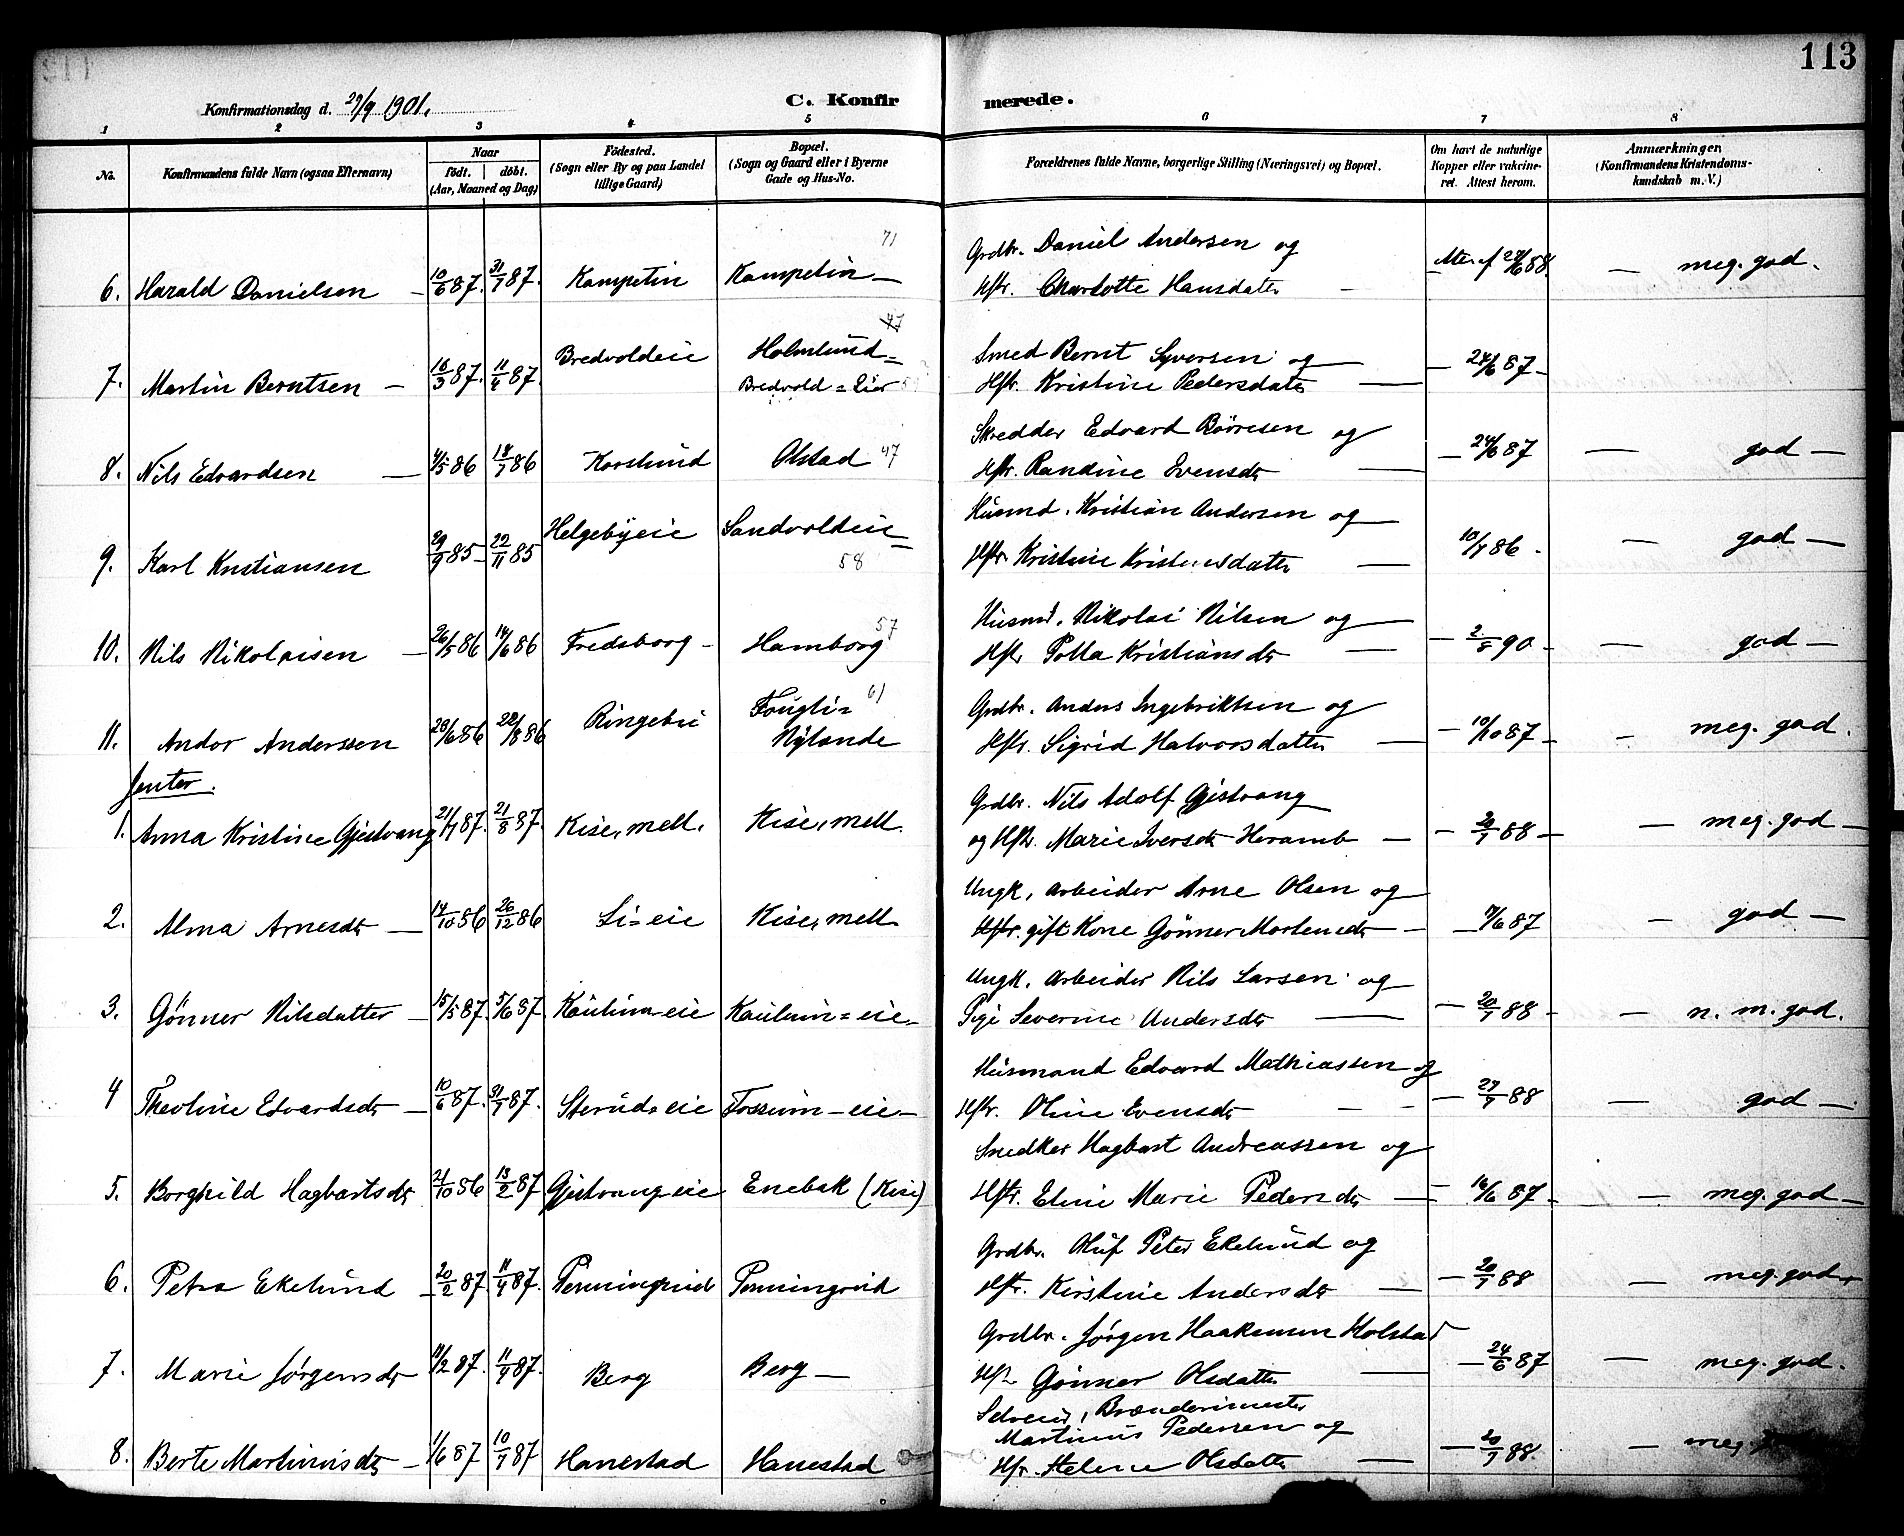 113
Konfirmationsdag d. 29/9 1901.
C. Konfir merede.
1 2 3 4 5 6 7 8
No. Konfirmandens fulde Navn (ogsaa Efternavn) Naar født. døbt. (Aar, Maaned og Dag) Fødested. (Sogn eller By og paa Landet tillige Gaard) Bopæl. (Sogn og Gaard eller i Byerne Gade og Hus-No. Forældrenes fulde Navne, borgerlige Stilling (Næringsvei) og Bopæl. Om havt de naturlige Kopper eller vakcineret. Attest herom. Anmærkninger (Konfirmandens Kristendomskundskab m. V.)
71
Grdbr. Daniel Andersen og
6. Harald Danielsen 10/6 87. 31/7 87. Kampetin Kampetin Hstr. Charlotte Hansdatter meg. god.
47
Bredvoldeie Holmlund= Smed Bernt Syversen og
7. Martin Berntsen 16/3 87. 11/4 87. Bredvold=Eier Hstr. Kristine Pedersdatter 24/6 87
Skredder Edvard Börresen og
8. Nils Edvardsen 4/5 86 18/7 86 Korslund Olstad 47 Hstr. Randine Ivensdtr 24/6 87 god
Helgebyeie Sandvoldeie= Husmd. Kristian Andersen og
9. Karl Kristiansen 29/9 85 22/11 85 58 Hstr. Kristine Kristensdatter 10/7 86 god
57
Husmd. Nikolai Nilsen og
10. Nils Nikolaisen 26/5 86 14/6 86 Fredsborg Hamborg Hstr. Polla Kristiansdtr 2/5 90 god
61
Ringebu Fougli= Grdbr. Anders Ingebriktsen og
11. Andor Anderssen 20/6 86 22/8 86 Nylænde Hstr. Sigrid Halvorsdatter 10/10 87 meg. god.
Jenter.
Grdbr. Nils Adolf Gjestvang
1. Anna Kristine Gjestvang 21/7 87. 21/8 87. Kise, mell. Kise, mell. og Hstr. Marie Iversdtr Heramb 20/7 88 meg. god
Ungk. arbeider Arne Olsen og
2. Alma Arnesdtr 14/10 86 26/12 86 Li=eie Kise, mell. Hstr. gift Kone Gønner Mortensdtr 7/6 87 god
Ungk. arbeider Nils Larsen og
3. Gønner Nilsdatter 15/5 87. 5/6 87 Kaulum=eie Kaulum=eie Pige Severine Andersdtr 20/7 88 n. m. god.
Husmand Edvard Mathiassen og
4 Theoline Edvardsdtr 10/6 87. 31/7 87. Sterud=eie Fossum=eie Hstr. Oline Evensdtr 27/7 88 god
Snedker Hagbart Andreassen og
5. Borghild Hagbartsdtr 21/10 86 13/2 87 Gjestvangeie Enebak (Kise) Hstr. Eline Marie Pedersdtr 16/6 87 meg. god
Grdbr. Oluf Peter Ekelund og
6. Petra Ekelund 20/2 87. 11/4 87. Penningrud Penningrud Hstr. Kirstine Andersdtr 20/7 88 meg. god
Grdbr. Jørgen Haakensen Holstad
7. Marie Jørgensdtr 11/2 87. 11/4 87. Berg Berg Hstr Gønner Olsdatter 24/6 87 meg. god.
Selveier, Brænderimester
Martinus Pedersen og
8. Berte Martinusdtr 1/6 87 10/7 87 Hanestad Hanestad Hstr. Helene Olsdatter 20/7 88. meg.